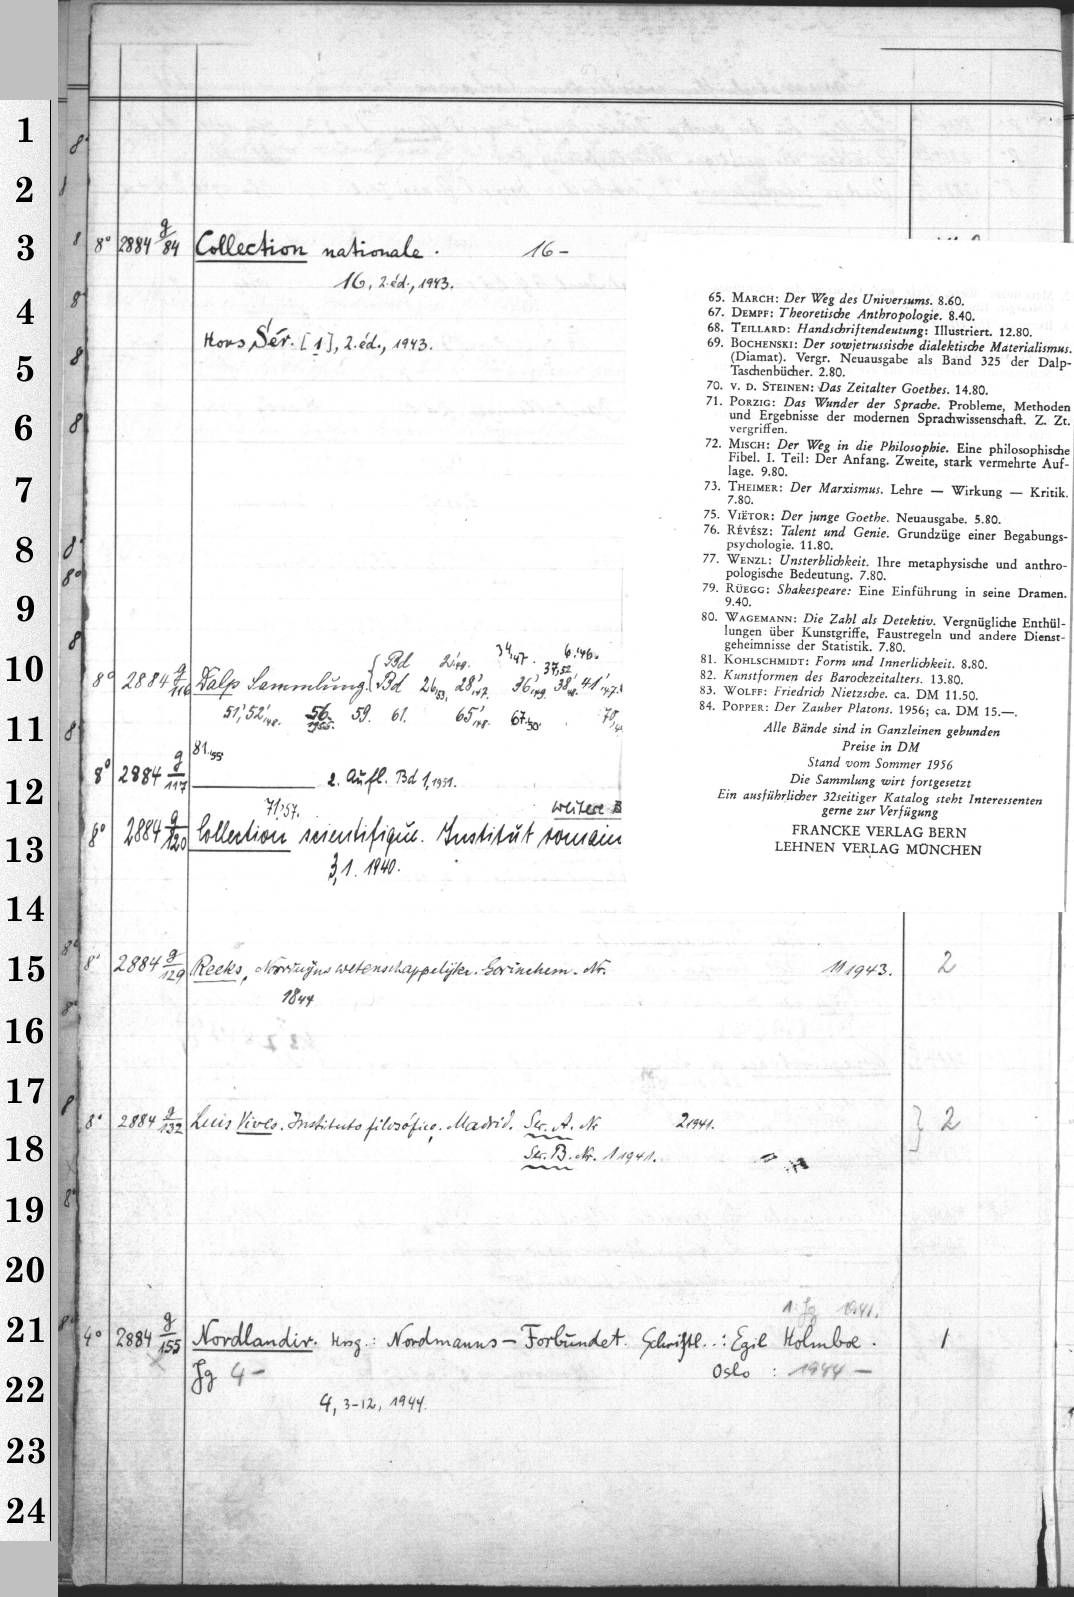 1
2
3
4
5
6
7
8
9
10
11
12
13
14
15
16
17
18
19
20
21
22
23
24
8° 2884 g/84 Collection nationale. 16 –
16, 2. éd., 1943.
Hors Sér. [1], 2. éd., 1943.
8° 2884 g/116 Dalp Sammlung. Bd
Bd 26,53, 28,47. 36,49 38,48. 41,47.
51, 52,48. 56.1955. 59. 61. 65,48. 67,50.
81.55
8° 2884 g/117 2. Aufl. Bd 1,1951.
71,57. weitere B
8° 2884 g/120 Collection scientifique. Institut romain
3,1. 1940.
8° 2884 g/129 Reeks, wetenschappelijke. Gorinchem. Nr. 11 1943. 2
18 44
8° 2884 g/132 Luis Vives. Instituto filosófico. Madrid. Ser. A. Nr 2 1941. 2
Ser. B. Nr. 1 1941.
1. Jg 1941.
4° 2884 g/155 Nordlandir. Hrsg.: Nordmanns-Forbundet. Schriftl..: Egil Holmboe. 1
Jg 4 – Oslo : 1944 –
4, 3-12, 1944.
65. MARCH: Der Weg des Universums. 8.60.
67. DEMPF: Theoretische Anthropologie. 8.40.
68. TEILLARD: Handschriftendeutung: Illustriert. 12.80.
69. BOCHENSKI: Der sowjetrussische dialektische Materialismus.
(Diamat). Vergr. Neuausgabe als Band 325 der Dalp-
Taschenbücher. 2.80.
70. V. D. STEINEN: Das Zeitalter Goethes. 14.80.
71. PORZIG: Das Wunder der Sprache. Probleme, Methoden
und Ergebnisse der modernen Sprachwissenschaft. Z. Zt.
vergriffen.
72. MISCH: Der Weg in die Philosophie. Eine philosophische
Fibel. I. Teil: Der Anfang. Zweite, stark vermehrte Auf-
lage. 9.80.
73. THEIMER: Der Marxismus. Lehre — Wirkung — Kritik.
7.80.
75. VIËTOR: Der junge Goethe. Neuausgabe. 5.80.
76. RÉVÉSZ: Talent und Genie. Grundzüge einer Begabungs-
psychologie. 11.80.
77. WENZL: Unsterblichkeit. Ihre metaphysische und anthro-
pologische Bedeutung. 7.80.
79. RÜEGG: Shakespeare: Eine Einführung in seine Dramen.
9.40.
80. WAGEMANN: Die Zahl als Detektiv. Vergnügliche Enthül-
lungen über Kunstgriffe, Faustregeln und andere Dienst-
geheimnisse der Statistik. 7.80.
81. KOHLSCHMIDT: Form und Innerlichkeit. 8.80.
82. Kunstformen des Barockzeitalters. 13.80.
83. WOLFF: Friedrich Nietzsche. ca. DM 11.50.
84. POPPER: Der Zauber Platons. 1956; ca. DM 15.—.
Alle Bände sind in Ganzleinen gebunden
Preise in DM
Stand vom Sommer 1956
Die Sammlung wirt fortgesetzt
Ein ausführlicher 32seitiger Katalog steht Interessenten
gerne zur Verfügung
FRANCKE VERLAG BERN
LEHNEN VERLAG MÜNCHEN